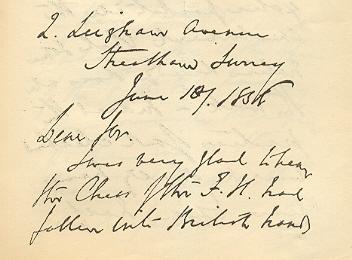 2. Leigham Avenue
Streatham Surrey
June 18/. 1886
Dear Sir.
I was very glad to hear
the Chess of the F. H. had
fallen into British hands